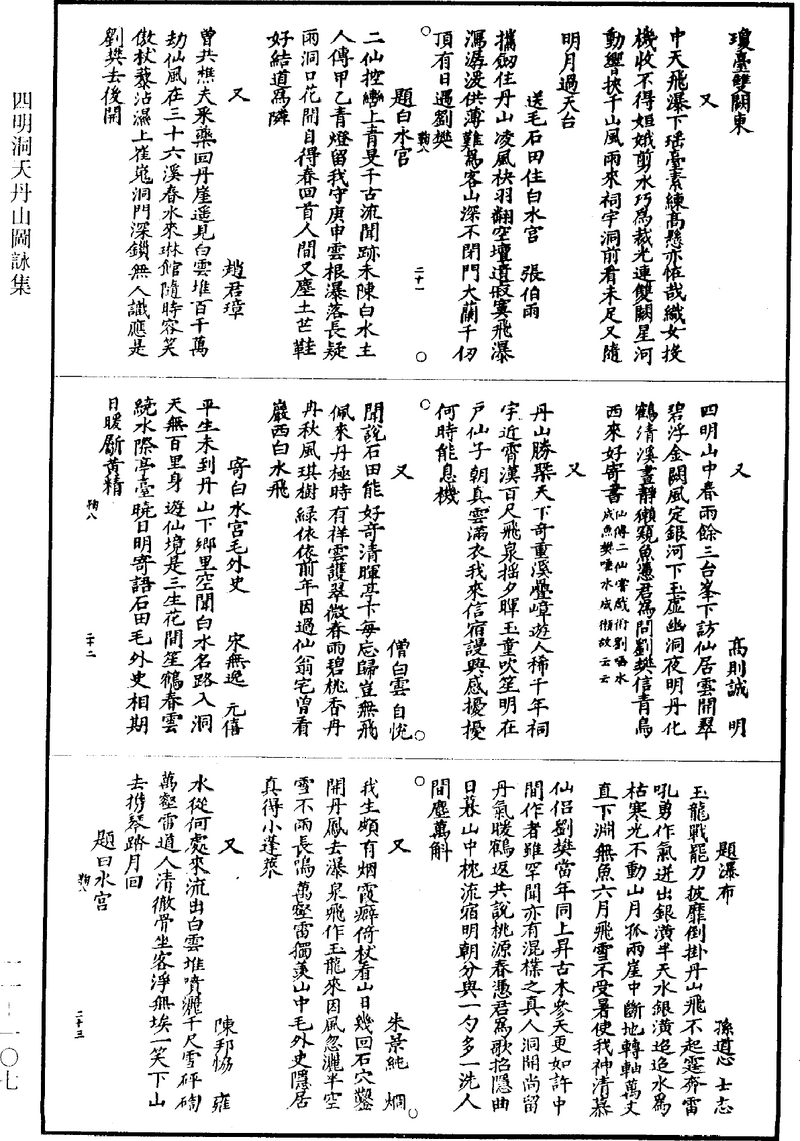 瓊臺雙闕東
又
中天飛瀑下瑤臺素練高懸亦恠哉織女投
機收不得姮娥剪水巧爲裁光連雙闕星河
動響挾千山風雨來祠宇洞前看未足又隨
明月過天台
送毛石田住白水宮 張伯雨
攜劒住丹山凌風袂羽翻空壇遺寂寞飛瀑
瀉潺湲供薄難爲客山深不閉門大蘭千仞
頂有日遇劉樊
鞠八 二十一
題白水宮
二仙控鸞上青旻千古流聞跡未陳白水主
人傳甲乙青燈留我守庚申雲根瀑落長疑
雨洞口花開自得春回首人間又塵土芒鞋
好結道爲隣
又 趙君璋
曾共樵夫采藥回丹崖遥見白雲堆百千萬
劫仙風在三十六溪春水來琳館隨時容笑
傲杖藜沾濕上崔嵬洞門深鎖無人識應是
劉樊去後開
又 高則誠 明
四明山中春雨餘三台峯下訪仙居雲開翠
碧浮金闕風定銀河下玉虛幽洞夜明丹化
鶴清溪晝靜獺窺魚憑君爲問劉樊信青鳥
西來好寄書仙傳二仙嘗戲術劉唾水成魚樊唾水成獺故云云
又
丹山勝槩天下奇重溪疊嶂遊人稀千年祠
宇近霄漢百尺飛泉摇夕暉玉童吹笙明在
戶仙子朝真雲滿衣我來信宿謾興感擾擾
何時能息機
又 僧白雲 自悅
聞說石田能好奇清暉亭下每忘歸豈無飛
佩來丹極時有祥雲護翠微春雨碧桃香丹
冉秋風琪樹緑依依前年因過仙翁宅曾看
巖西白水飛
寄白水宮毛外史 宋無逸 元僖
平生未到丹山下鄉里空聞白水名路入洞
天無百里身遊仙境是三生花間笙鶴春雲
繞水際亭臺曉日明寄語石田毛外史相期
日暖斸黄精
鞠八 二十二
題瀑布 孫道心 士志
玉龍戰罷力披靡倒掛丹山飛不起霆奔雷
吼勇作氣迸出銀潢半天水銀潢追追水爲
枯寒光不動山月孤兩崖中斷地轉軸萬丈
直下淵無魚六月飛雪不受暑使我神清慕
仙侣劉樊當年同上昇古木參天更如許中
間作者雖罕聞亦有混襍之真人洞開尚留
丹氣暖鶴返共說桃源春憑君爲歌招隱曲
日暮山中枕流宿明朝分與一勺多一洗人
間塵萬斛
又 朱景純 烱
我生頗有烟霞癖倚杖看山日幾回石穴鑿
開丹鳳去瀑泉飛作玉龍來因風忽灑半空
雪不雨長鳴萬壑雷獨羡山中毛外史隱居
真得小蓬萊
又 陳邦協 雍
水從何處來流出白雲堆噴灑千尺雪砰訇
萬壑雷道人清徹骨坐客淨無埃一笑下山
去携琴踏月回
題白水宮
鞠八 二十三
四明洞天丹山圖詠集
一一—一〇七